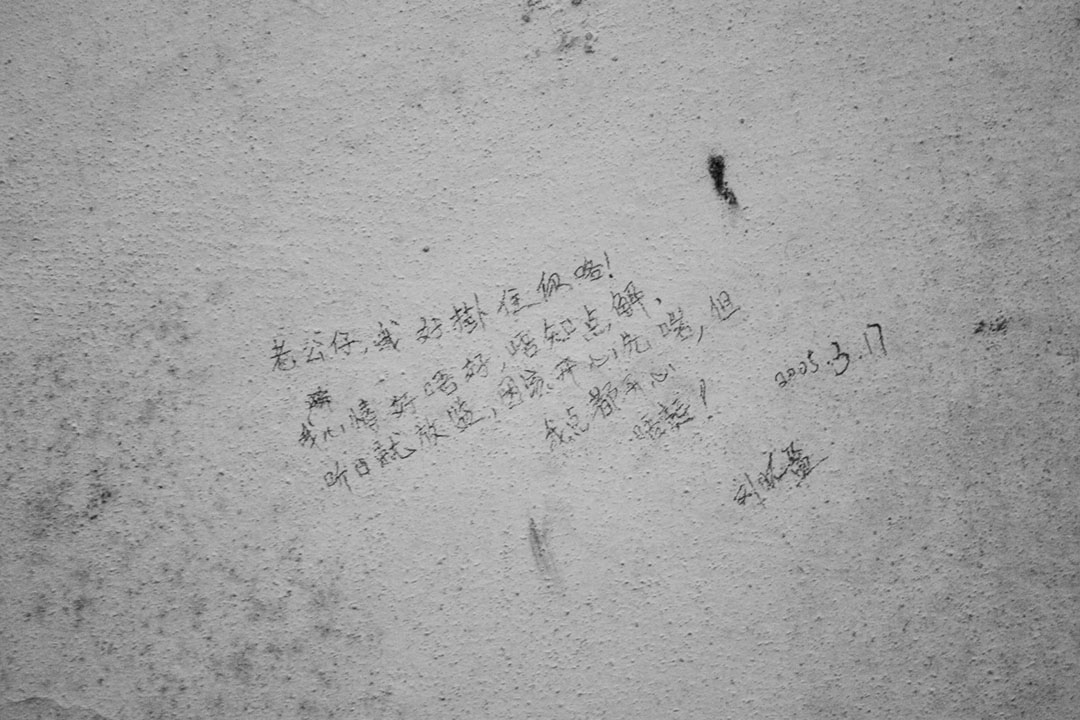 老公仔，我好掛住你咯！
我心情好唔好，唔知点解，
听日就放监，因該开心先啱，但
我点都开心
唔起！
2005.3.17
刘